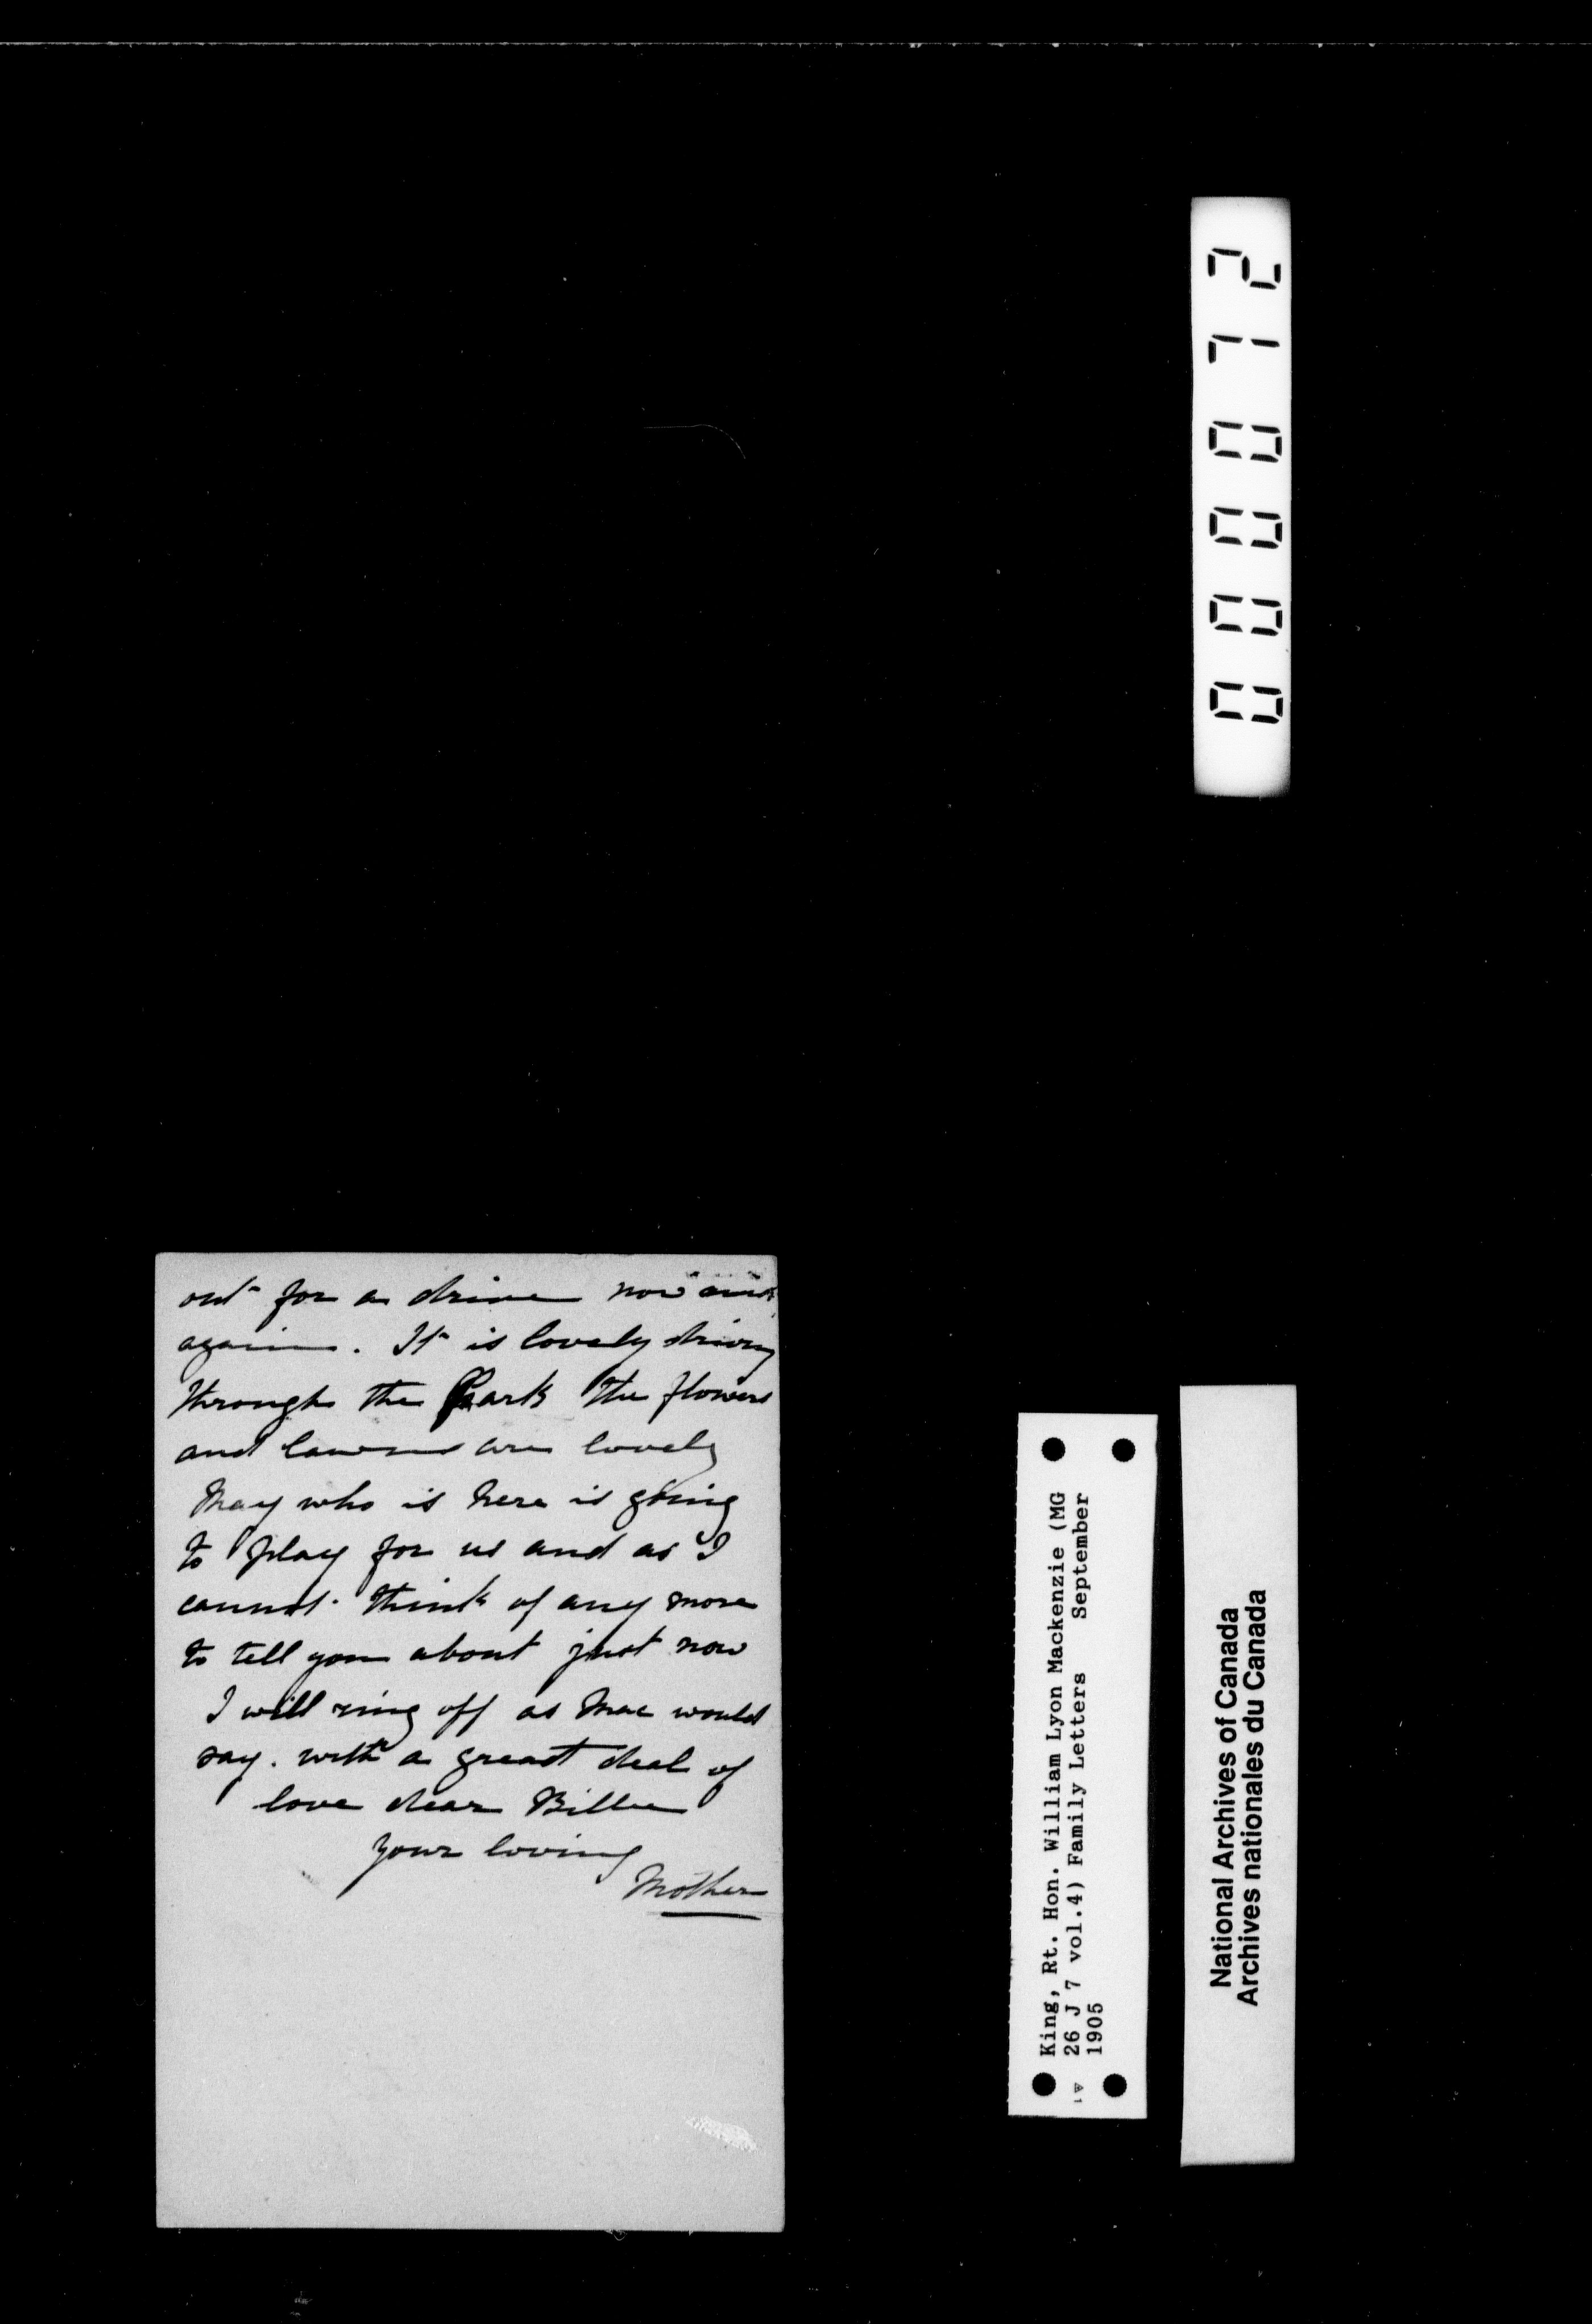 out for a drive now and
again. It is lovely driving
through the Park the flowers
and lawns are lovely
May who is here is going
to play for us and as I
cannot think of any more
to tell you about just now
I will ring off as Mac would
say. with a great deal of
love dear Billie
your loving
Mother
000072
King, Rt. Hon. William Lyon Mackenzie (MG
26 J 7 vol.4) Family Letters September
1905
National Archives of Canada
Archives nationales du Canada